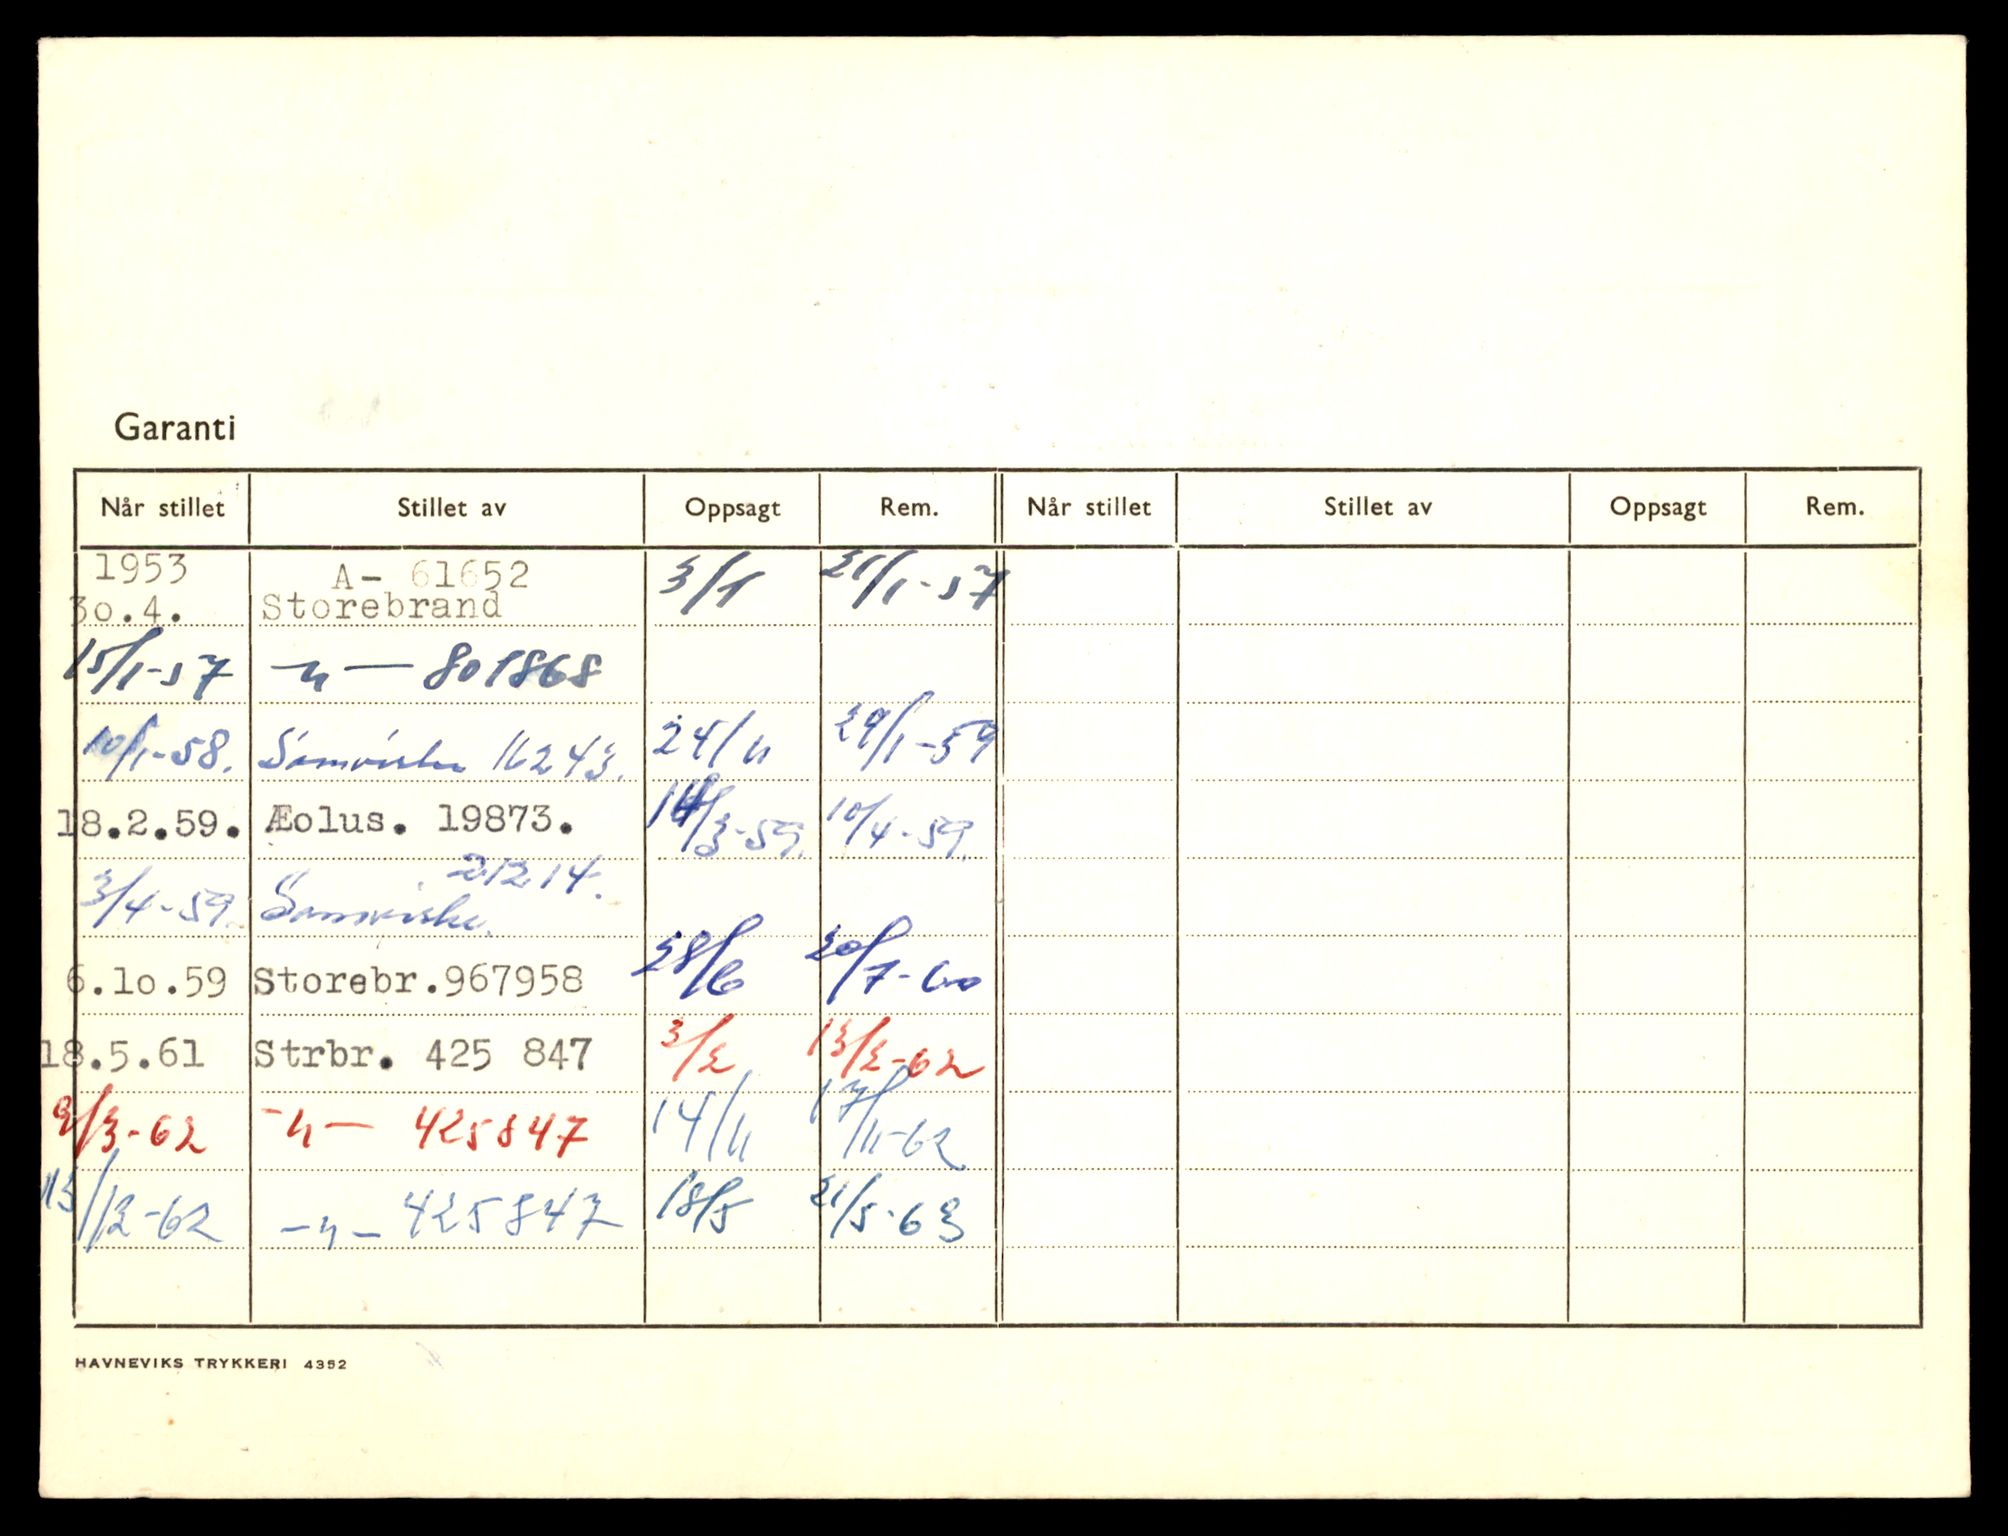 Garanti
Når stillet Stillet av Oppsagt Rem. Når stillet Stillet av Oppsagt Rem.
1953 A- 61652
30.4. Storebrand 3/1 21/1-57
15/1-57 -"- 801868
10/1-58. Samvirke 16243. 24/11 29/1-59
18.2.59. Æolus. 19873. 14/3-59. 10/4-59.
21214.
3/4-59. Samvirke.
6.10.59 Storebr.967958 28/6 20/7-60
18.5.61 Strbr. 425 847 3/2 13/2-62
2/3-62 -"- 425847 14/11 17/11-62
13/12-62 -"- 425847 18/5 21/5-63
HAVNEVIKS TRYKKERI 4352